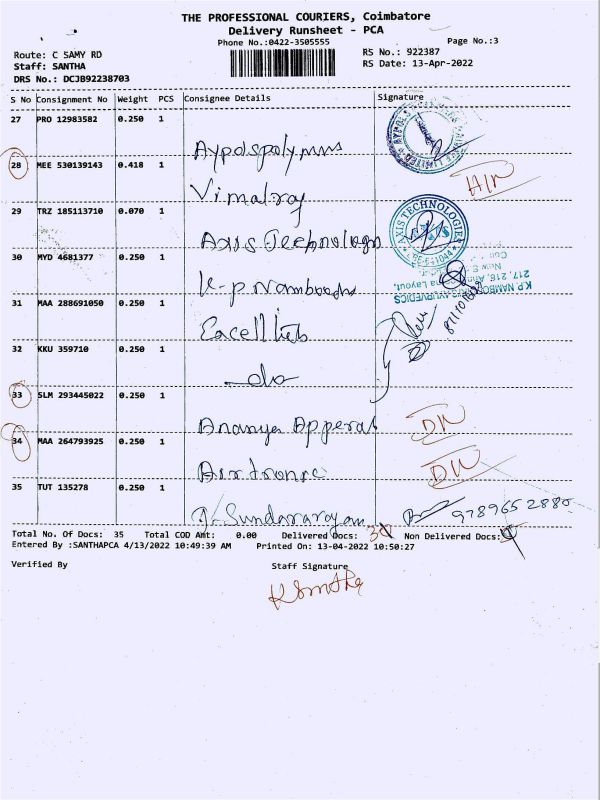 THE PROFESSIONAL COURIERS, Coimbatore
Delivery Runsheet - PCA
Phone No.:0422-3505555
Page No.:3
Route: C SAMY RD
RS No.: 922387
Staff: SANTHA
RS Date: 13-Apr-2022
DRS No.: DCJB92238703
S No Consignment No Weight PCS Consignee Details Signature
27 PRO 12983582 0.250 1
Aypolspolymers
28 MEE 530139143 0.418 1
Vimalraj
29 TRZ 185113710 0.070 1
AXIS TECHNOLOGIES
Axis Technologn
30 MYD 4681377 0.250 1
K.P NAMBOO
AYURVEDICS
217, 216,
Layout,
K-p Namboodri
31 MAA 288691050 0.250 1
Excell
32 KKU 359710 0.250 1
do
33 SLM 293445022 0.250 1
Ananya Apperal DN
34 MAA 264793925 0.250 1
Airtronic DN
35 TUT 135278 0.250 1
Sundararajan 9789652880
Total No. Of Docs: 35 Total COD Amt: 0.00 Delivered Docs: Non Delivered Docs:
Entered By :SANTHAPCA 4/13/2022 10:49:39 AM Printed On: 13-04-2022 10:50:27
Verified By Staff Signature